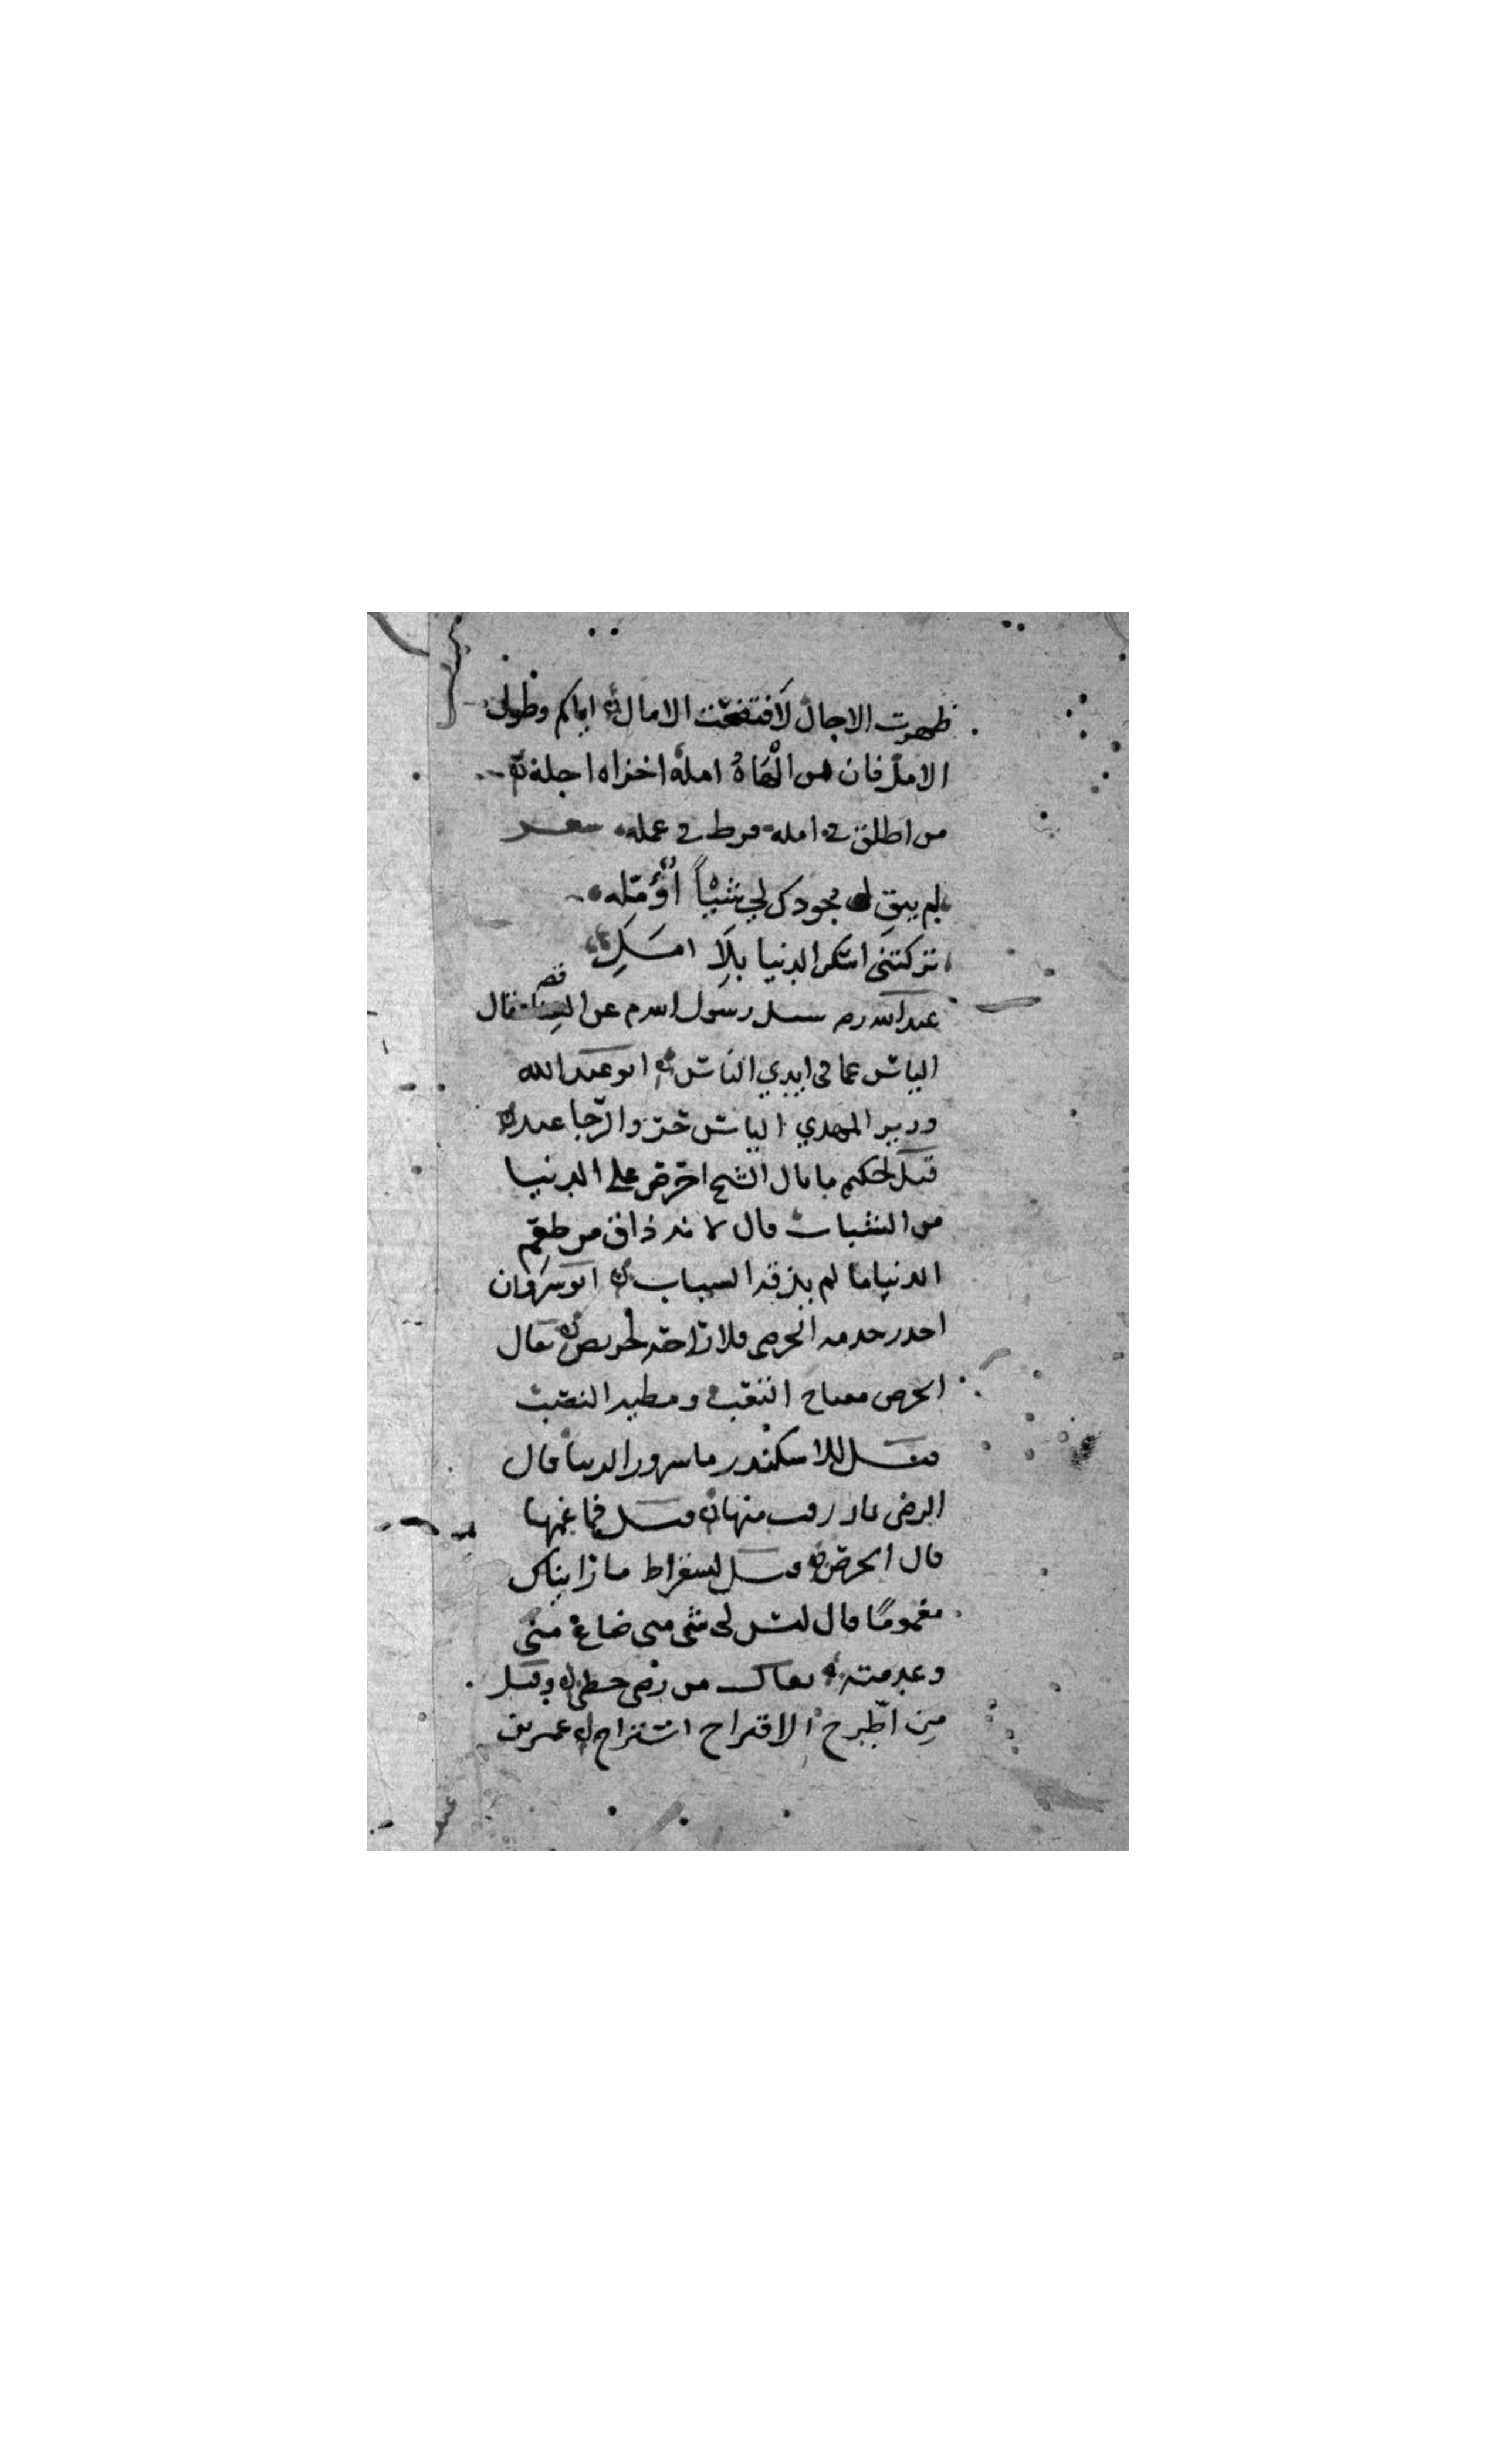 ظهرت الاجال لافتضحت الامال اياكم وطول
الامل فان من الهاه امله اخزاه اجله
من اطلق في امله فرط في عمله شعر
لم يبق جودك لي شيئاً أؤمّله
تركتني اشكر الدنيا بلا امل
عبد الله رضه سئل رسول الله م عن فقال
الياس عما في ايدي الناس ابو عبد الله
وزير المهدي الياس حرّ والرّجا عبد
قيل لحكيم ما بال الشيخ احرص على الدنيا
من الشباب قال لانه ذاق من طعم
الدنيا ما لم يذقه الشباب انوشروان
احذر خدمه الحرص فلا راحه لحريص يقال
الحرص مفتاح التعب ومطيه النصب
وقيل للاسكندر ما سرور الدنيا قال
الرضى بما رزقت منها وقيل فما غمها
قال الحرص وقيل لسقراط ما رايناك
مغموما قال ليس لى شى متى ضاع منى
وعدمته يقال من رضى حظى وقيل
من اطّرح الاقتراح استراح عمر بن